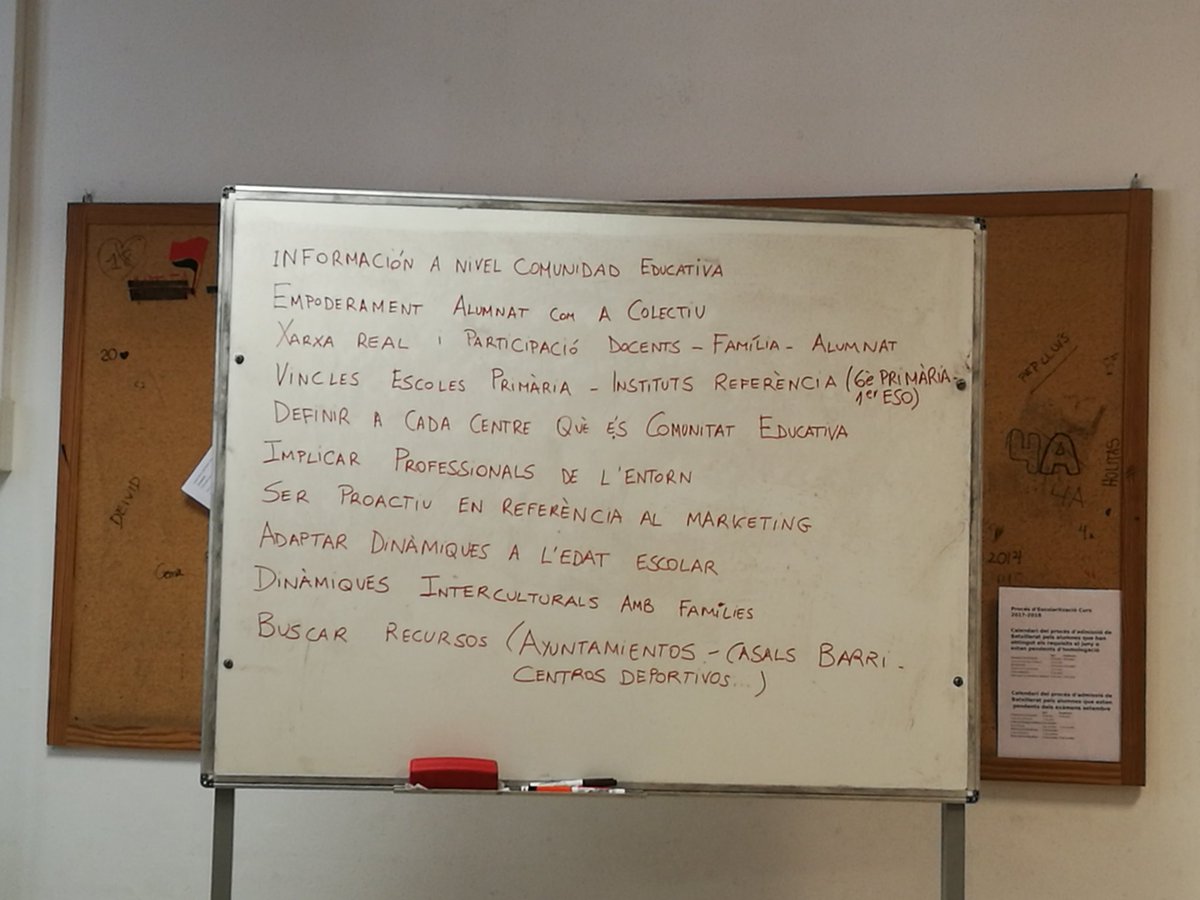 INFORMACIÓN A NIVEL COMUNIDAD EDUCATIVA
EMPODERAMENT ALUMNAT COM A COLECTIU
XARXA REAL I PARTICIPACIÓ DOCENTS - FAMÍLIA - ALUMNAT
VINCLES ESCOLES PRIMÀRIA - INSTITUTS REFERÈNCIA (6è PRIMÀRIA -
1er ESO)
DEFINIR A CADA CENTRE QUÈ ÉS COMUNITAT EDUCATIVA
IMPLICAR PROFESSIONALS DE L'ENTORN
SER PROACTIU EN REFERÈNCIA AL MARKETING
ADAPTAR DINÀMIQUES A L'EDAT ESCOLAR
DINÀMIQUES INTERCULTURALS AMB FAMÍLIES
BUSCAR RECURSOS (AYUNTAMIENTOS - CASALS BARRI -
CENTROS DEPORTIVOS...)
20
DEIVID
PEP LLUÍS
4A
4A
HOLITAS
Procés d'Escolarització Curs
2017-2018
Calendari del procés d'admissió de
Batxillerat pels alumnes que han
estan pendents d'homologació
Calendari del procés d'admissió de
Batxillerat pels alumnes que estan
pendents dels exàmens setembre